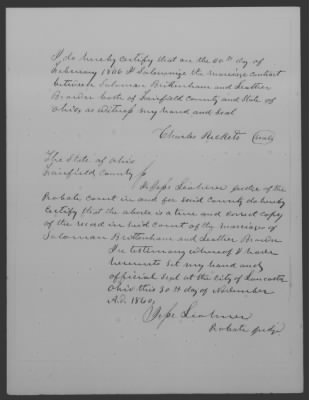 I do hereby certify that on the 20th day of
February 1806 I Solomonize the marriage contract
between Solomon Brittenham and Leather
Browden both of Fairfield County and State of
Ohio, as witness my hand and seal
Charles Rickets (seal)
The State of Ohio
Fairfield County
I Jesse Leohner Judge of the
Probate Court in and for said County do hereby
Certify that the above is a true and correct copy
of the record in said Court of the marriages of
Solomon Brittenham and Leather Browden
In testimony whereof I have
hereunto set my hand and
official Seal at the City of Lancaster
Ohio this 30th day of November
A.D. 1860,
Jesse Leohner
Probate Judge